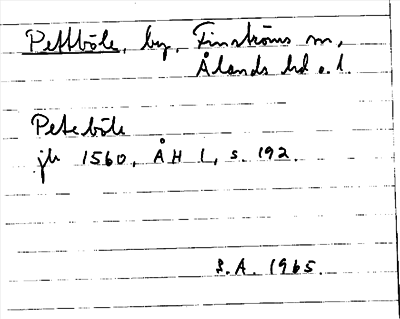 Pettböle, by, Finströms sn,
Ålands hd o. l.
Peteböle
jb 1560, ÅH 1, s. 192.
S.A. 1965.